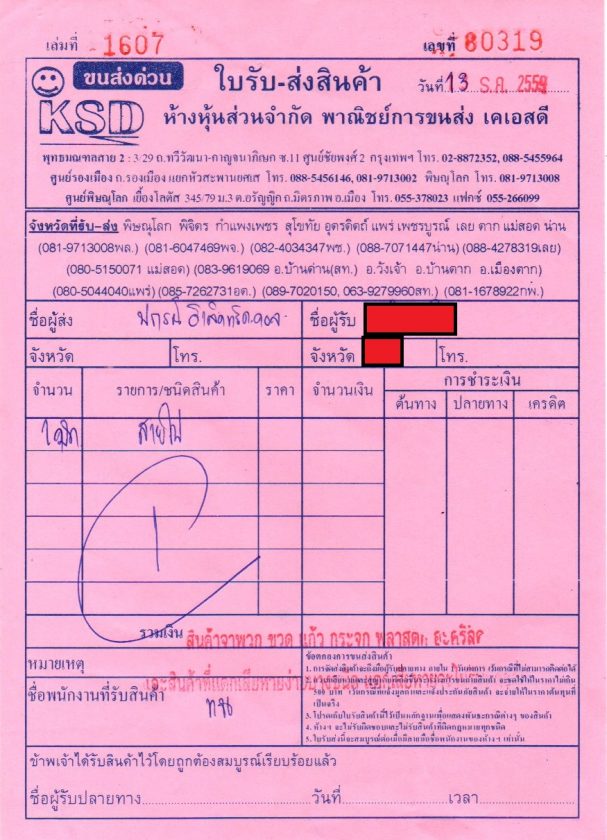 เล่มที่ 1607 เลขที่ 80319
ขนส่งด่วน ใบรับ-ส่งสินค้า วันที่ 13 ธ.ค. 2559
KSD ห้างหุ้นส่วนจำกัด พาณิชย์การขนส่ง เคเอสดี
พุทธมณฑลสาย 2 : 3/29 ถ.ทวีวัฒนา-กาญจนาภิเษก ซ.11 ศูนย์ชัยพงศ์ 2 กรุงเทพฯ โทร. 02-8872352, 088-5455964
ศูนย์รองเมือง ถ.รองเมือง แยกหัวสะพานยศเส โทร. 088-5456146, 081-9713002 พิษณุโลก โทร. 081-9713008
ศูนย์พิษณุโลก เยื้องโลตัส 345/79 ม.3 ต.อรัญญิก ถ.มิตรภาพ อ.เมือง โทร. 055-378023 แฟกซ์ 055-266099
จังหวัดที่รับ-ส่ง พิษณุโลก พิจิตร กำแพงเพชร สุโขทัย อุตรดิตถ์ แพร่ เพชรบูรณ์ เลย ตาก แม่สอด น่าน
(081-9713008พล.) (081-6047469พจ.) (082-4034347พช.) (088-7071447น่าน) (088-4278319เลย)
(080-5150071 แม่สอด) (083-9619069 อ.บ้านด่าน(สท.) อ.วังเจ้า อ.บ้านตาก อ.เมืองตาก)
(080-5044040แพร่) (085-7262731อต.) (089-7020150, 063-9279960สท.) (081-1678922กพ.)
ชื่อผู้ส่ง ชื่อผู้รับ
จังหวัด โทร. จังหวัด โทร.
จำนวน รายการ/ชนิดสินค้า ราคา จำนวนเงิน การชำระเงิน
ต้นทาง ปลายทาง เครดิต
1 สายไฟ
รวมเงิน
สินค้าจำพวก ขวด แก้ว กระจก พลาสติก อะคริลิค
หมายเหตุ
ข้อตกลงการขนส่งสินค้า
ชื่อพนักงานที่รับสินค้า
3. โปรดเก็บใบรับสินค้านี้ไว้เป็นหลักฐาน
ข้าพเจ้าได้รับสินค้าไว้โดยถูกต้องสมบูรณ์เรียบร้อยแล้ว
ชื่อผู้รับปลายทาง วันที่ เวลา